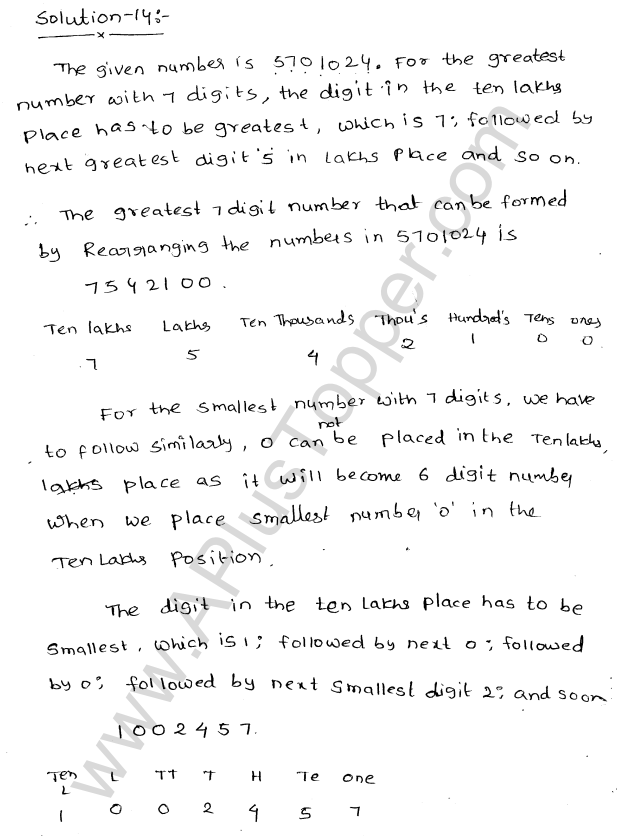 Solution-14:-
The given number is 5701024. For the greatest
number with 7 digits, the digit in the ten lakhs
place has to be greatest, which is 7; followed by
next greatest digit '5 in lakhs place and so on.
∴ The greatest 7 digit number that can be formed
by Rearranging the numbers in 5701024 is
7542100.
Ten lakhs Lakhs Ten Thousands Thou's Hundred's Tens ones
7 5 4 2 1 0 0
For the smallest number with 7 digits, we have
not
to follow similarly, 0 can be placed in the Ten lakhs,
lakhs place as it will become 6 digit number
when we place smallest number '0' in the
Ten Lakhs position.
The digit in the ten Lakhs place has to be
smallest, which is 1; followed by next 0; followed
by 0; followed by next smallest digit 2; and so on
1002457.
Ten L TT T H Te one
L
1 0 0 2 4 5 7
www.APlusTopper.com